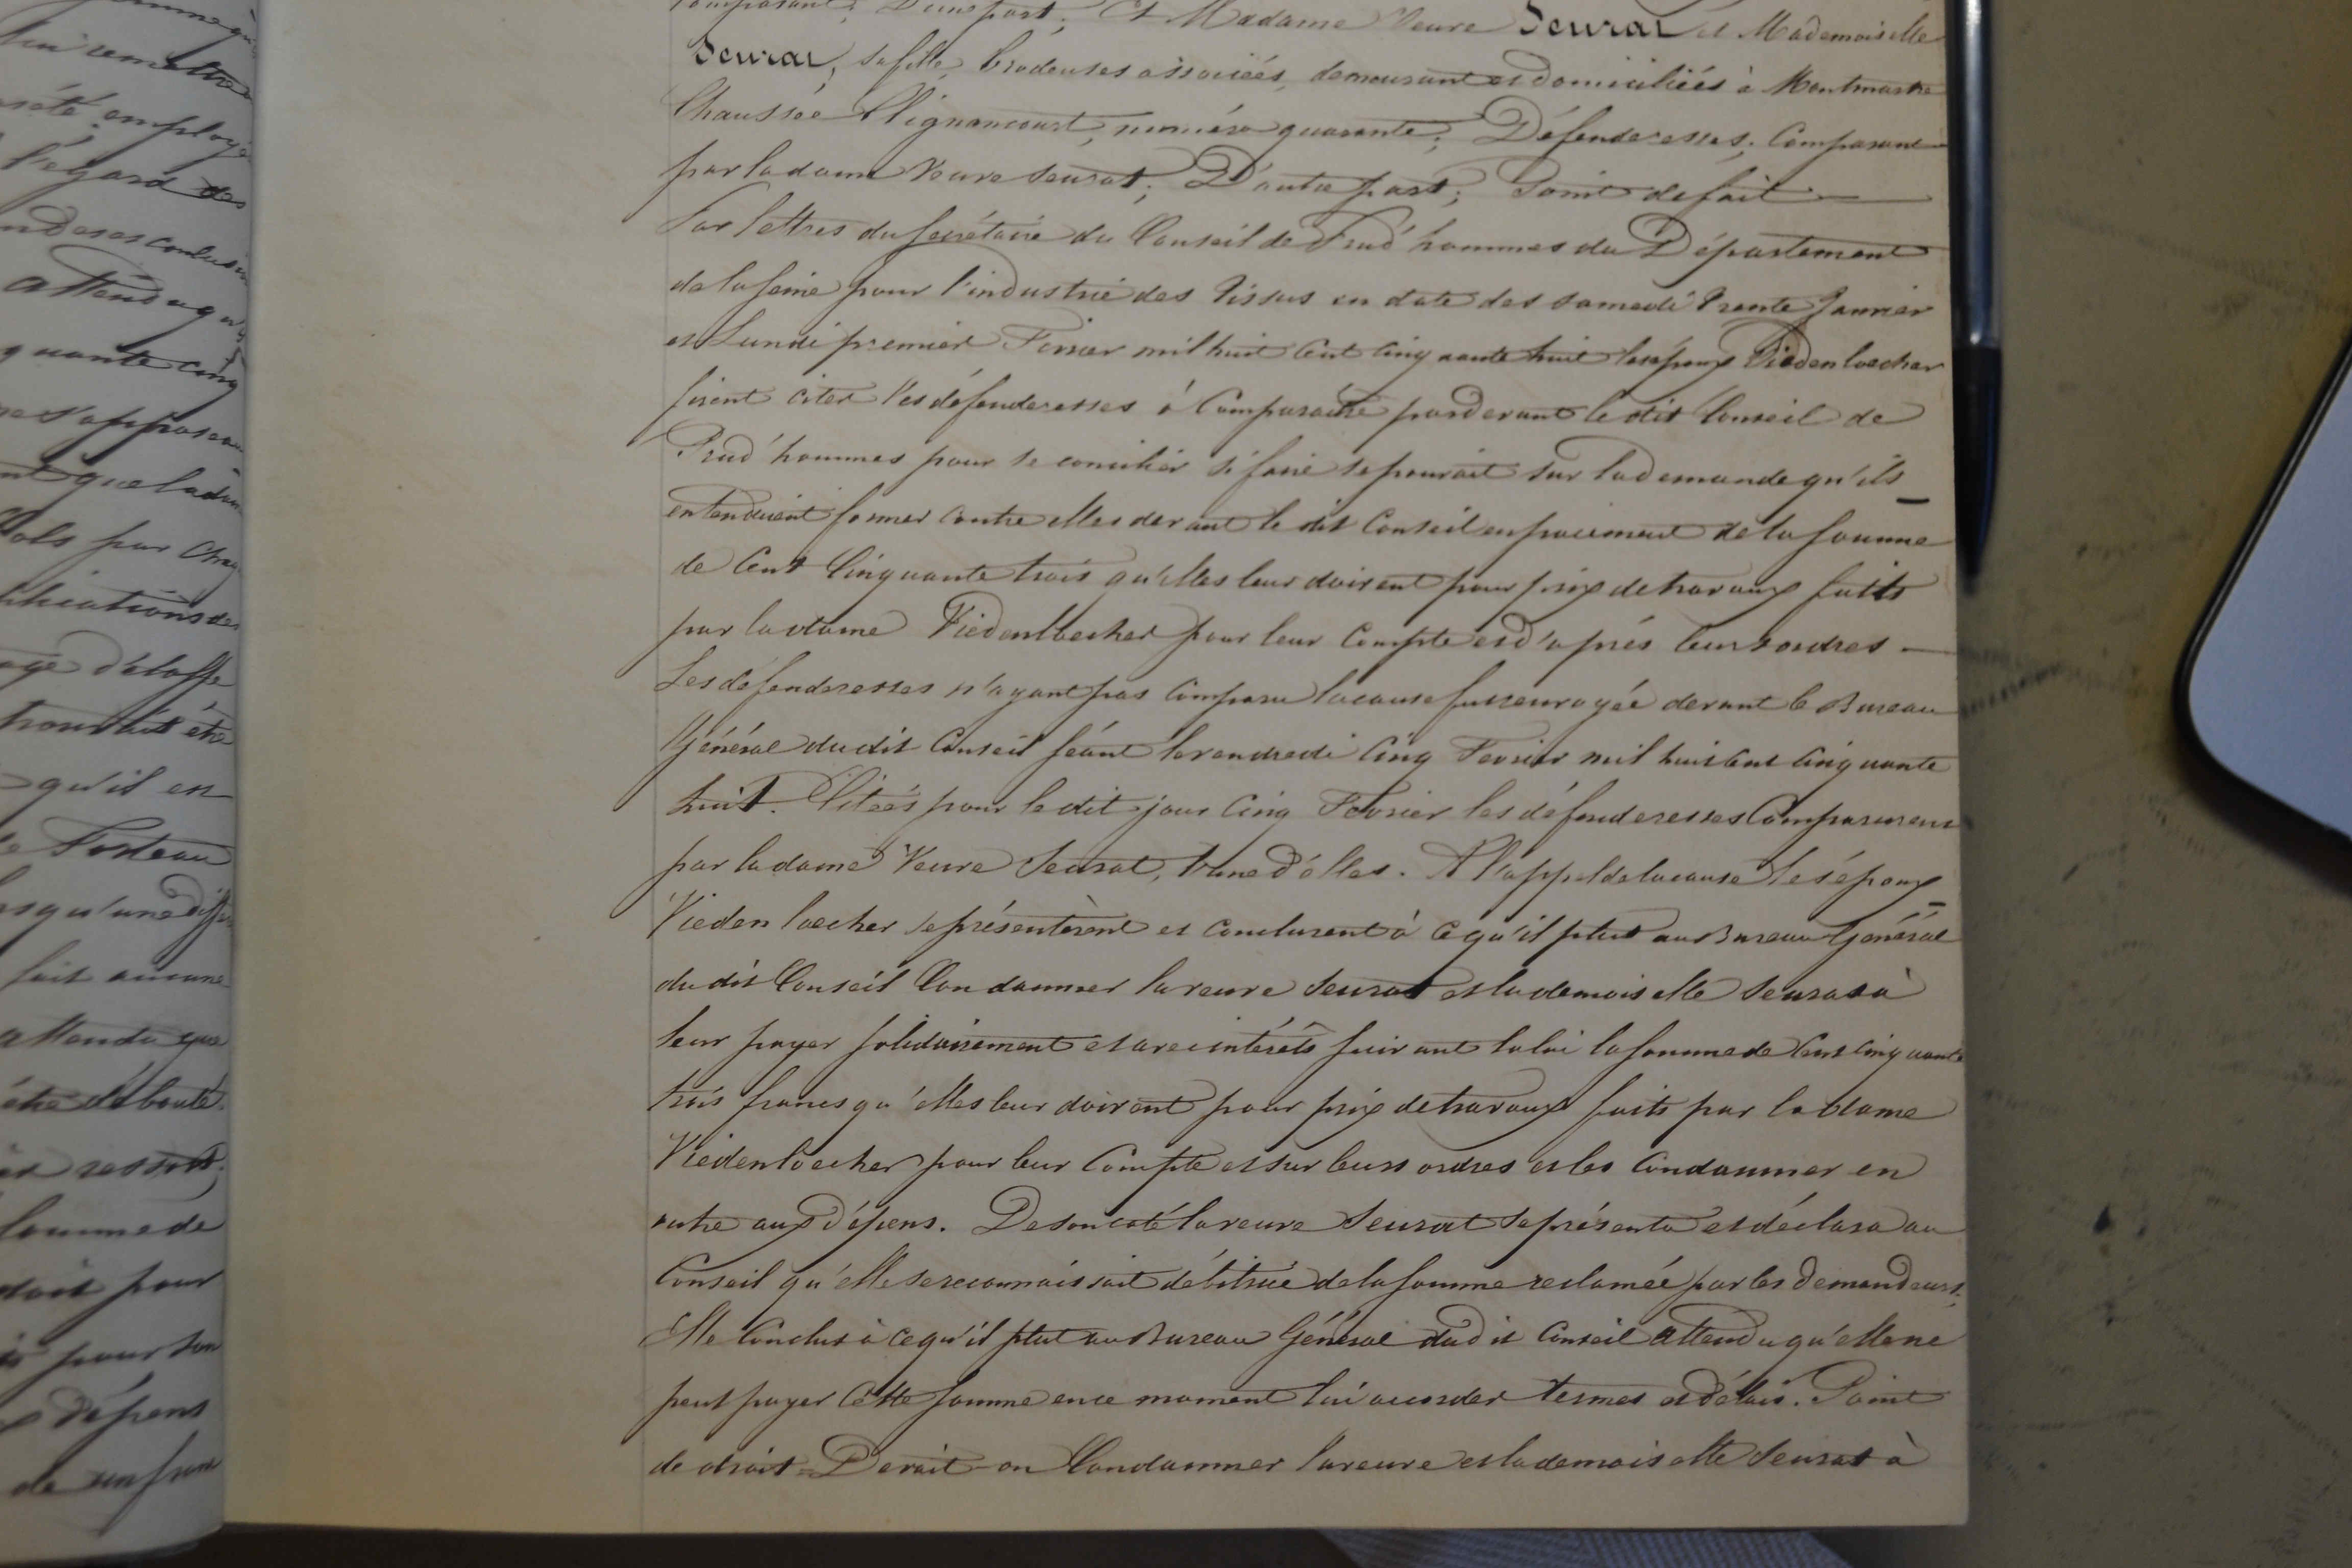 Comparant; D'une part; Et Madame Veuve Seurat et Mademoiselle
Seurat, sa fille, brodeuses associées, demeurant et domiciliées à Montmartre
Chaussée Clignancourt, numéro quarante; Défenderesses; Comparant
par la dame Veuve Seurat; D'autre part; Point de fait —
Par lettres du secrétaire du Conseil de Prud'hommes du Département
de la Seine pour l'industrie des Tissus en date des samedi trente Janvier
et Lundi premier Fevrier mil huit cent cinquante huit les époux Viedenloecher
firent citer les défenderesses à Comparaitre pardevant le dit Conseil de
Prud'hommes pour se concilier si faire se pouvait sur la demande qu'ils
entendaient former contre elles devant le dit Conseil en paiement de la somme
de Cent Cinquante trois qu'elles leur doivent pour prix de travaux faits
par la dame Viedenloecher pour leur Compte et d'après leurs ordres —
Les défenderesses n'ayant pas Comparu la cause fut renvoyée devant le Bureau
Général du dit Conseil séant le vendredi Cinq Fevrier mil huit cent cinquante
huit. Citées pour le dit jour Cinq Fevrier les défenderesses Comparurent
par la dame Veuve Seurat, l'une d'elles. A l'appel de la cause les époux
Viedenloecher se présentèrent et conclurent à ce qu'il plut au Bureau Général
du dit Conseil Condamner la veuve Seurat et la demoiselle Seurat à
leur payer solidairement et avec intérêts suivant la loi la somme de Cent cinquante
trois francs qu'elles leur doivent pour prix de travaux faits par la dame
Viedenloecher pour leur Compte et sur leurs ordres et les Condamner en
outre aux dépens. De son coté la veuve Seurat se présenta et déclara au
Conseil qu'elle se reconnaissait débitrice de la somme reclamée par les demandeurs;
Elle Conclut à ce qu'il plut au Bureau Général du dit Conseil attendu qu'elle ne
peut payer cette somme en ce moment lui accorder termes et délais. Point
de droit = Devait-on Condamner la veuve et la demoiselle Seurat à
lui remettre
été employé
l'égard des
attendu qu'
quante cinq
s'opposer
par chaq
d'étoffe
qu'il en
qu'une
fait aucune
attendu que
être débouté
ressort;
somme de
doit pour
pour son
dépens
de un franc